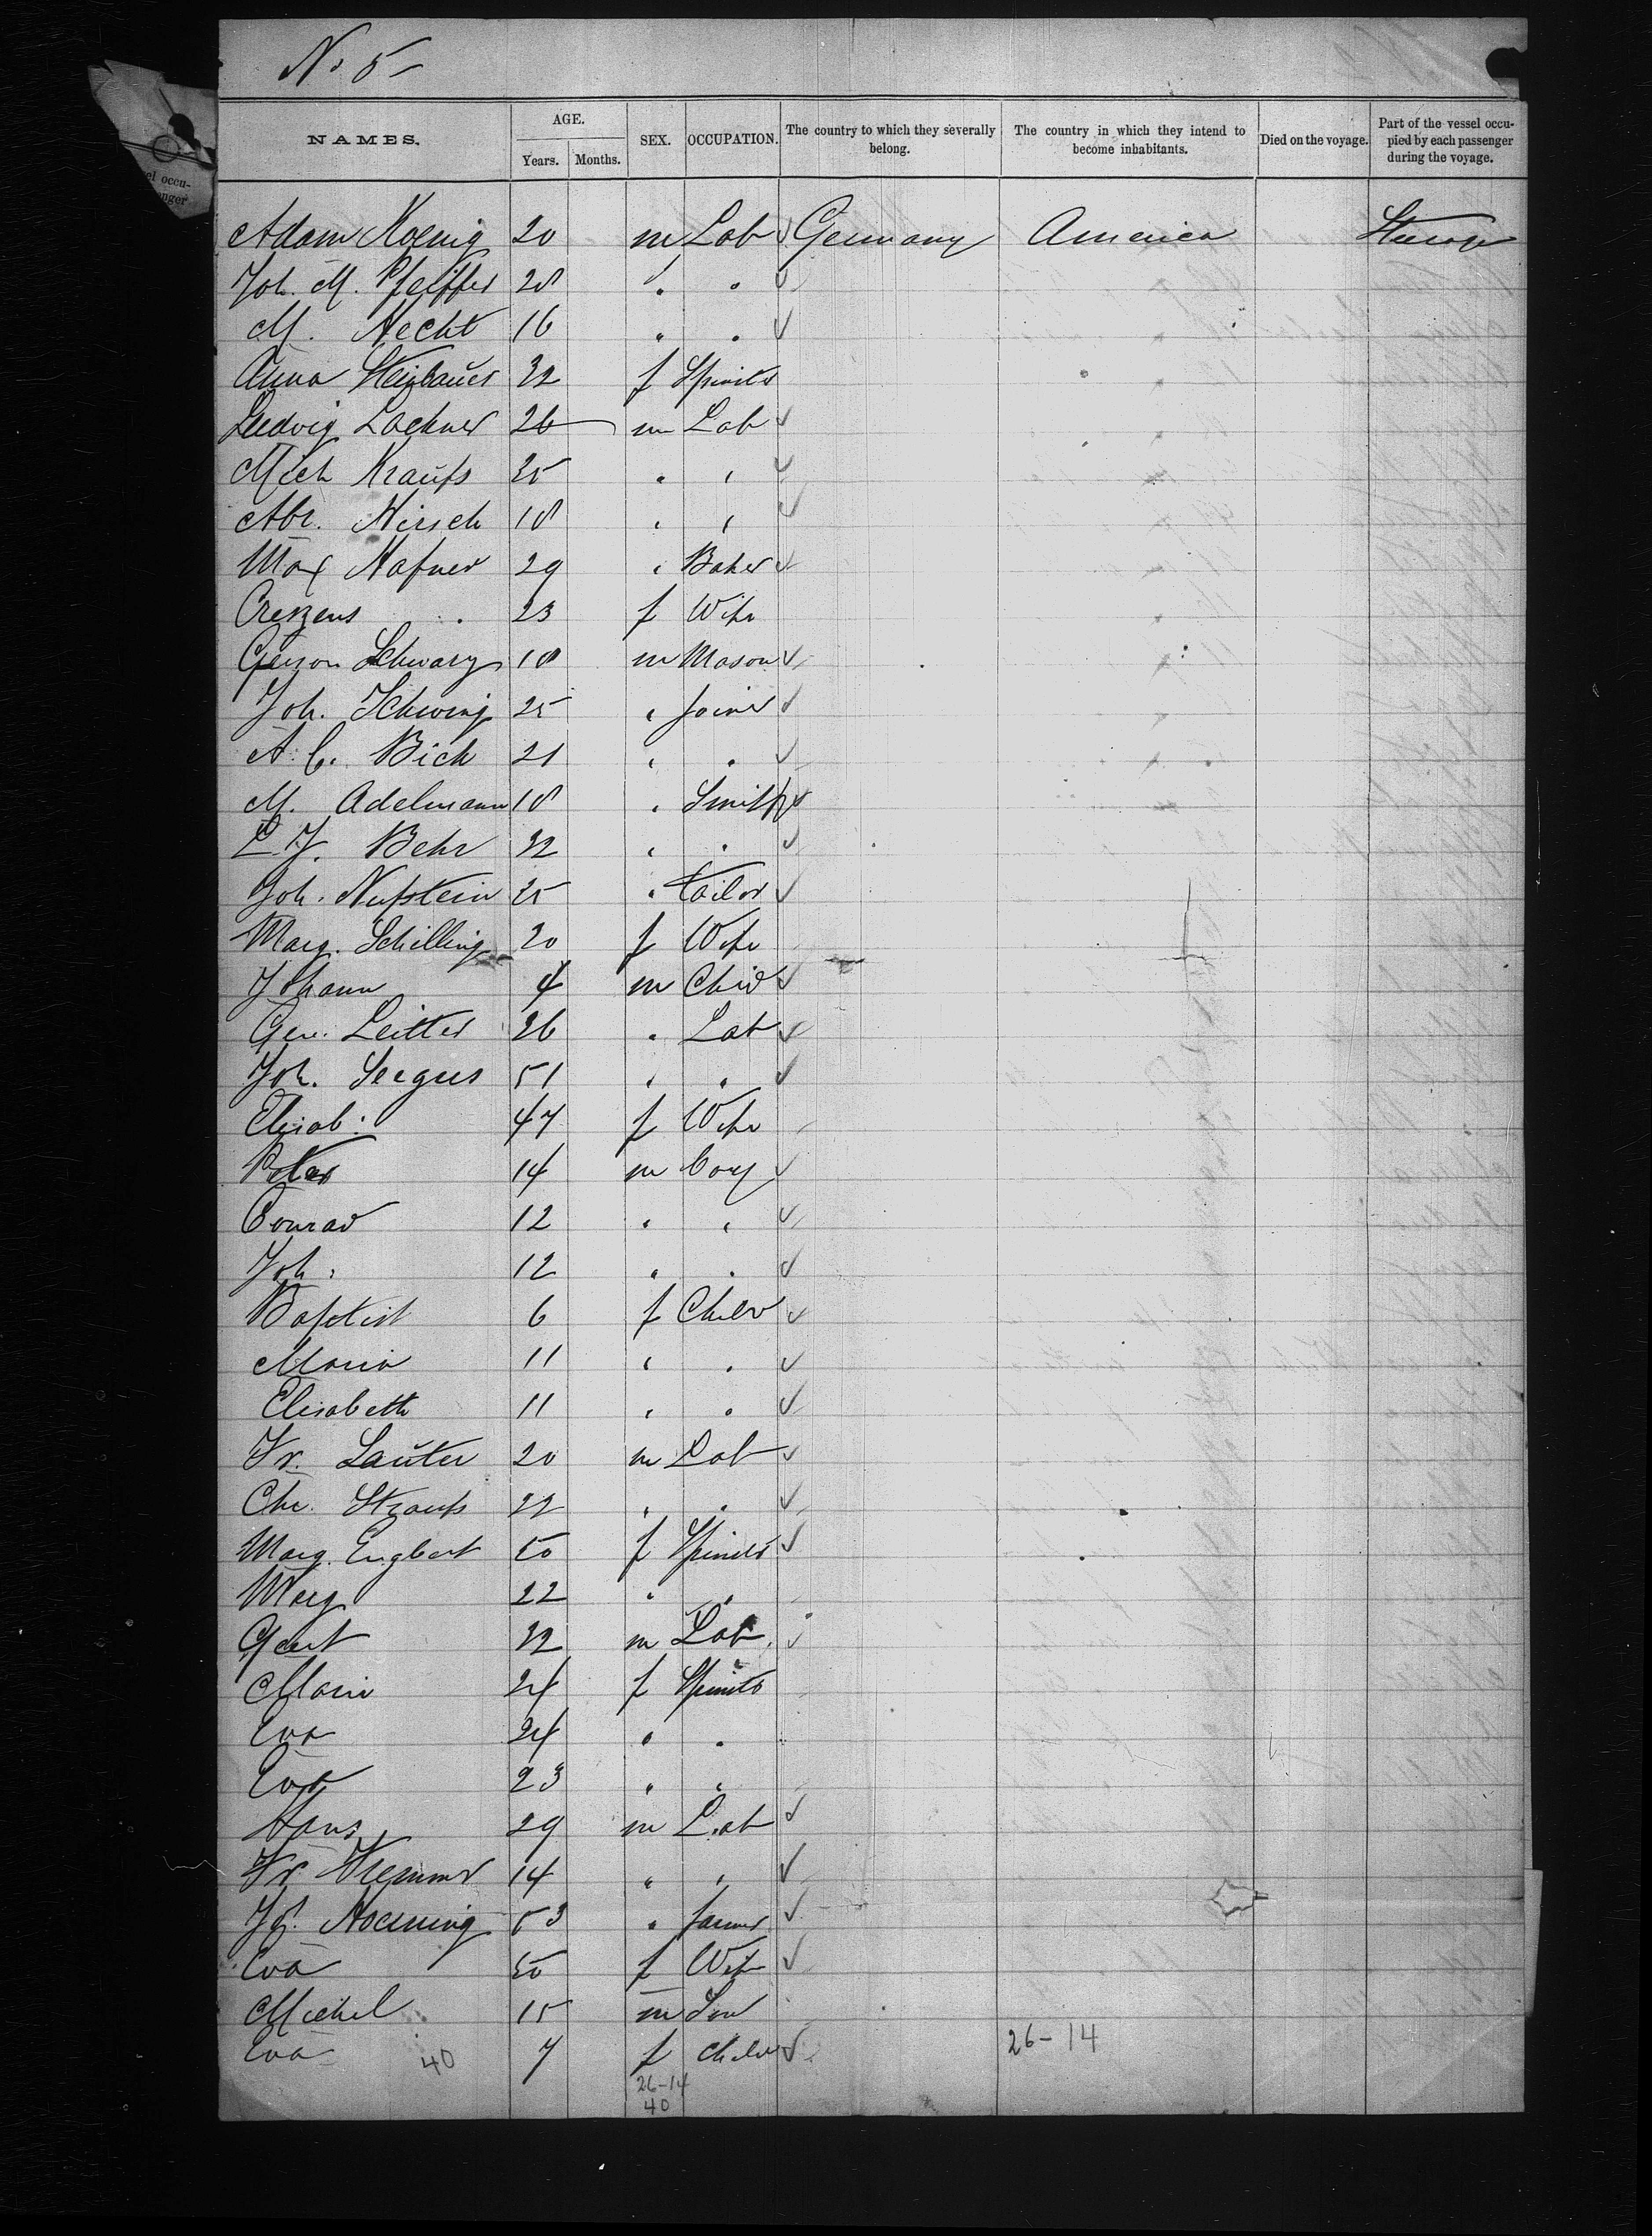 No 5
NAMES. AGE. Years. Months. SEX. OCCUPATION. The country to which they severally belong. The country in which they intend to become inhabitants. Died on the voyage. Part of the vessel occupied by each passenger during the voyage.
Adam Koenig 20 m Lab Germany America Steerage
Joh. M. Pfeiffer 28 " "
M. Hecht 16 " "
Anna Steinbauer 32 f Spinster
Ludwig Lackner 26 m Lab
Mich Krauſs 25 " "
Abr. Hirsch 18 " "
Max Hafner 29 " Baker
Creszens " 23 f Wife
Gerson Schwarz 18 m Mason
Joh. Schwing 25 " Joiner
A. C. Bich 21 " "
M. Adelmann 18 " Smith
L. J. Behr 32 " "
Joh. Nuſstein 25 " Tailor
Marg. Schilling 20 f Wife
Johann 4 m Child
Geo. Leitter 26 " Lab
Joh. Sergus 51 " "
Elisab: 47 f Wife
Peter 14 m boy
Conrad 12 " "
Joh: 12 " "
Baptist 6 f Child
Maria 11 " "
Elisabeth 11 " "
Fr. Lauter 20 m Lab
Chr. Strauſs 22 " "
Marg. Engbert 50 f Spinster
Marg 22 " "
32 m Lab
Maria 24 f Spinster
Eva 24 " "
Eva 23 " "
Hans 29 m Lab
Fr. 14 " "
53 " farmer
Eva 50 f Wife
Michel 15 m Son
Eva 40 7 f Child 26-14
26-14
40